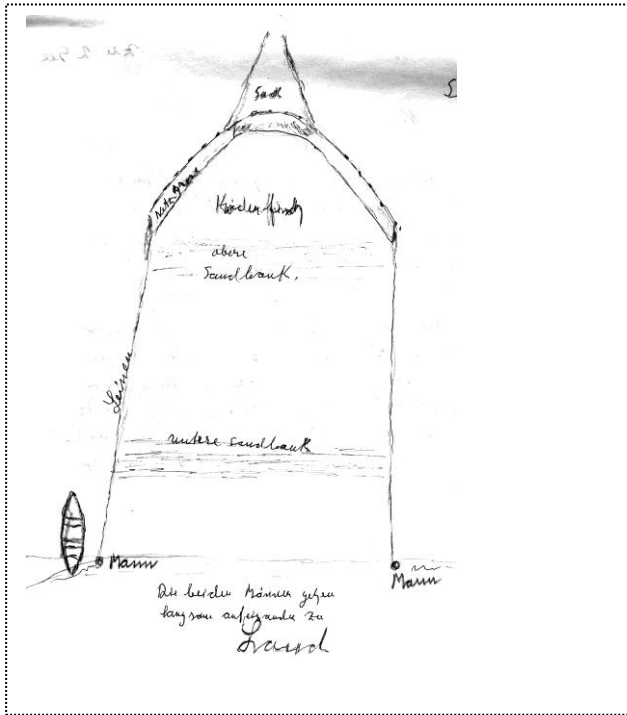 Sack
Netz
Köderfisch
obere
Sandbank.
Leinen
untere Sandbank
Mann
Mann
Die beiden Männer gehen
langsam aufeinander zu
Land